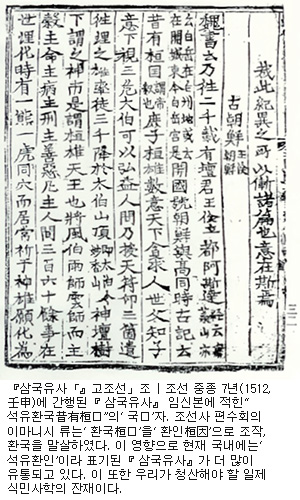 哉此紀異之所以漸諸篇也意在斯焉
古朝鮮 王儉朝鮮
魏書云乃徃二千載有壇君王儉立都阿斯達
開國號朝鮮與高同時古記云
昔有桓国 庶子桓雄數意天下貪求人世父知子
意下視三危大伯可以弘益人間乃授天符印三箇遣
徃理之雄率徒三千降於太伯山頂 神壇樹
下謂之神市是謂桓雄天王也將風伯雨師雲師而主
穀主命主病主刑主善惡凡主人間三百六十餘事在
世理化時有一熊一虎同穴而居常祈于神雄願化為
『삼국유사「』고조선」조ㅣ조선 중종 7년(1512,
壬申)에 간행된『삼국유사』임신본에 적힌“
석유환국昔有桓囗”의‘ 국囗’자. 조선사 편수회의
이마니시 류는‘ 환국桓囗’을‘ 환인桓因’으로 조작,
환국을 말살하였다. 이 영향으로 현재 국내에는‘
석유환인’이라 표기된『삼국유사』가 더 많이
유통되고 있다. 이 또한 우리가 청산해야 할 일제
식민사학의 잔재이다.